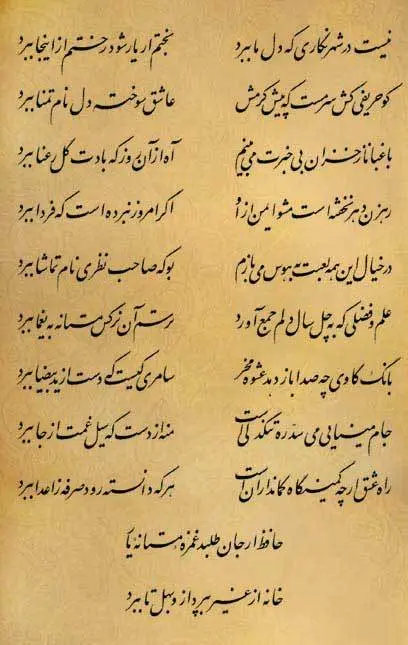 نیست در شهر نگاری که دل ما ببرد بختم ار یار شود رختم از اینجا ببرد
کو حریفی کش سرمست که پیش کرمش عاشق سوخته دل نام تمنا ببرد
باغبانا ز خزان بی خبرت می بینم آه از آن روز که بادت گل رعنا ببرد
رهزن دهر نخفته است مشو ایمن ازو اگر امروز نبرده است که فردا ببرد
در خیال این همه لعبت به هوس می بازم بو که صاحب نظری نام تماشا ببرد
علم و فضلی که به چل سال دلم جمع آورد ترسم آن نرگس مستانه به یغما ببرد
بانگ گاوی چه صدا باز دهد عشوه مخر سامری کیست که دست از ید بیضا ببرد
جام مینایی می سد ره تنگ دلی است منه از دست که سیل غمت از جا ببرد
راه عشق ار چه کمینگاه کمانداران است هر که دانسته رود صرفه ز اعدا ببرد
حافظ ار جان طلبد غمزه مستانه یار
خانه از غیر بپرداز و بهل تا ببرد